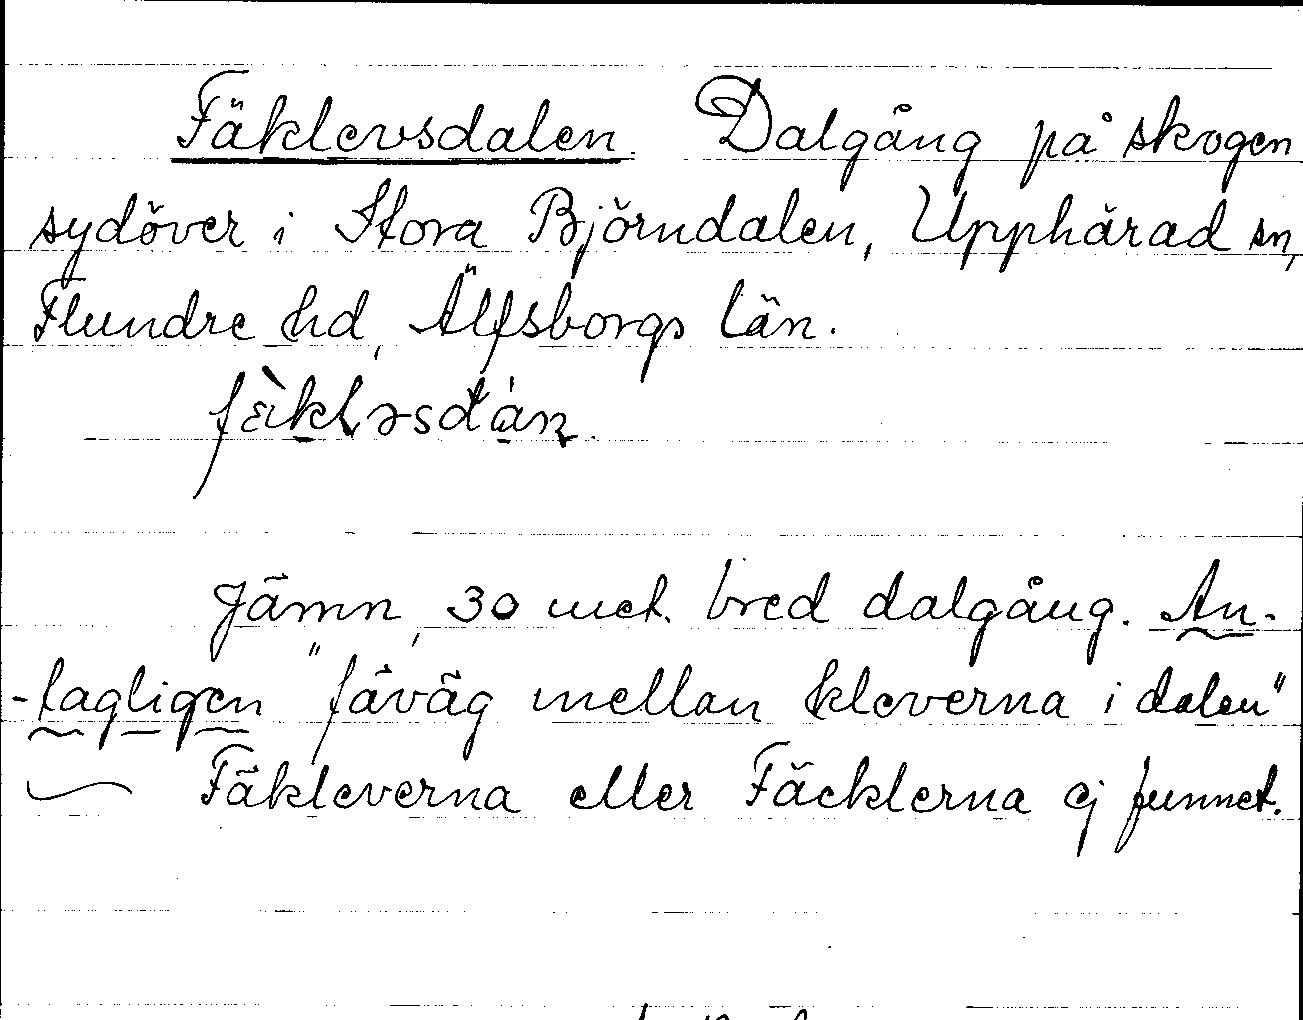 Fäklevsdalen. Dalgång på skogen
sydöver i Stora Björndalen, Upphärad sn,
Flundre hd, Älfsborgs län.
Jämn, 30 met. bred dalgång. An-
-tagligen "fäväg mellan kleverna i dalen"
Fäkleverna eller Fäcklerna ej funnet.